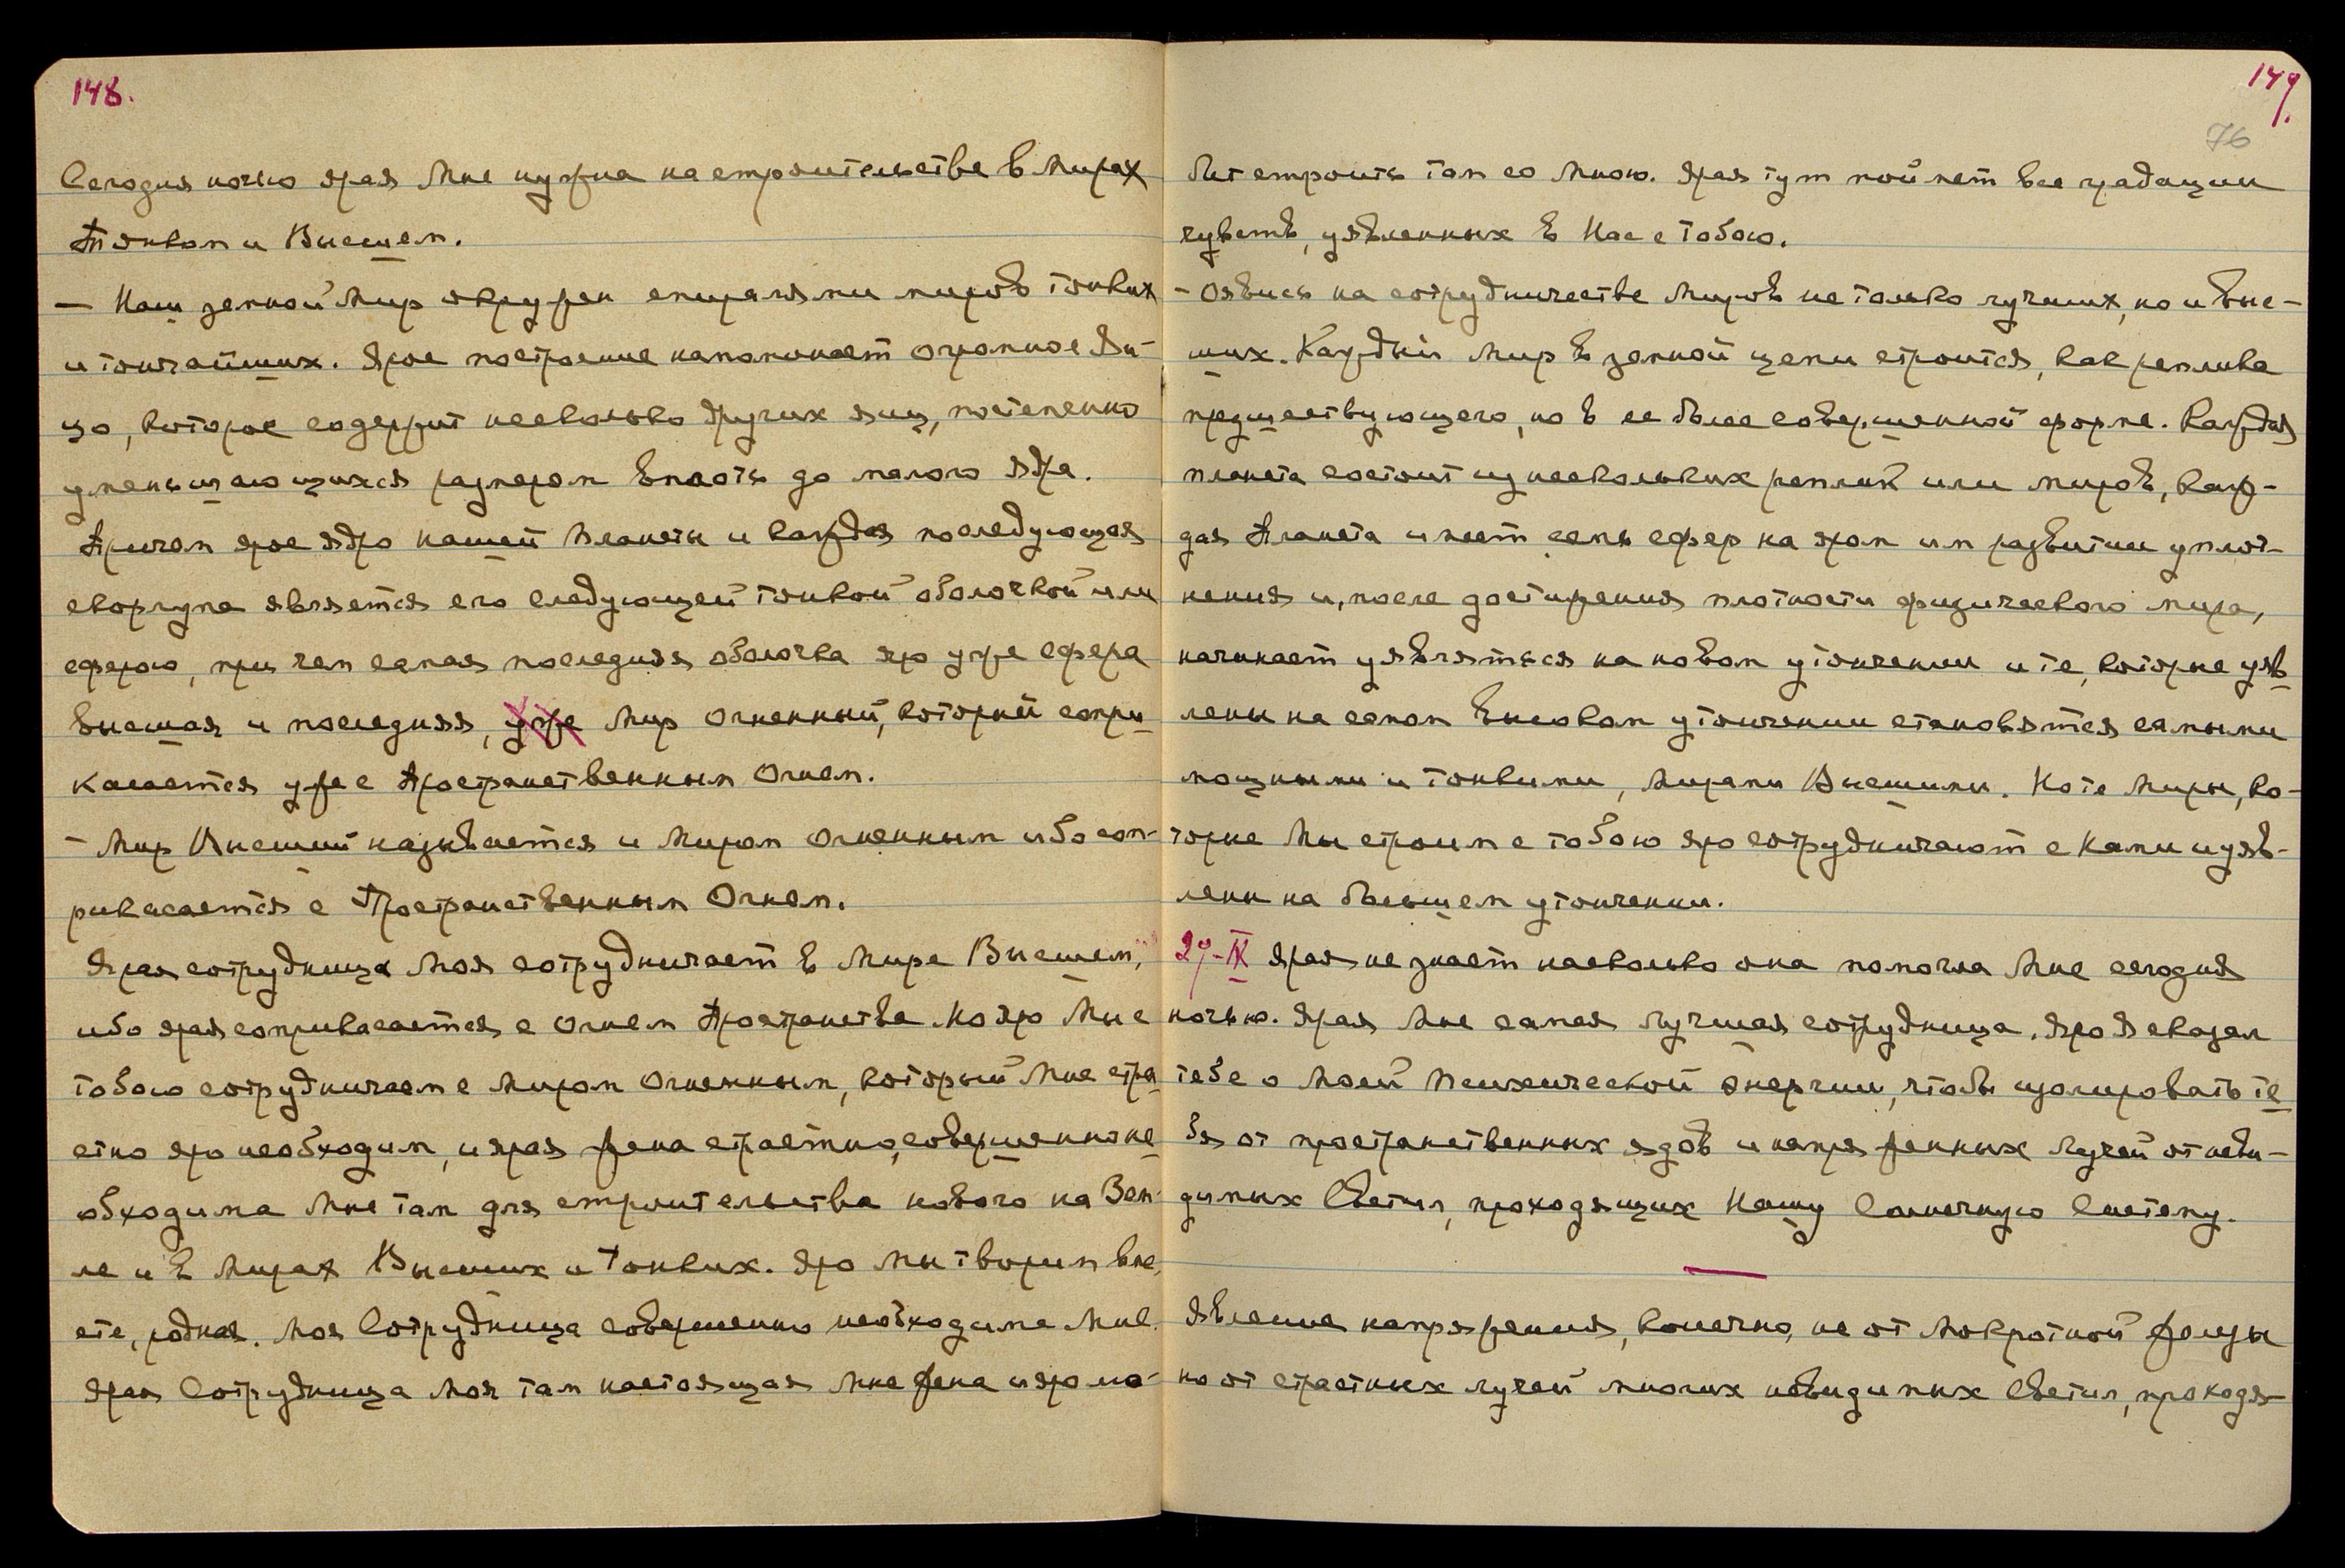 148.
Сегодня ночью ярая Мне нужна на строительстве в Мирах
Тонком и Высшем.
— Наш земной Мир окружен спиралями миров тонких
и тончайших. Ярое построение напоминает огромное Яй-
цо, которое содержит несколько других яиц, постепенно
уменьшающихся размером вплоть до малого ядра.
Причем ярое ядро нашей планеты и каждая последующая
скорлупа является его следующей тонкой оболочкой или
сферою, при чем самая последняя оболочка яро уже сфера
высшая и последняя, уже Мир Огненный, который сопри
касается уже с Пространственным Огнем.
— Мир Высший называется и Миром Огненным ибо соп-
рикасается с Пространственным Огнем.
Ярая сотрудница Моя сотрудничает в Мире Высшем,
ибо ярая соприкасается с Огнем Пространства. Но яро Мы с
тобою сотрудничаем с Миром Огненным, который Мне стра
стно яро необходим, и ярая жена страстно, совершенно не
обходима Мне там для строительства нового на Зем-
ле и в Мирах Высших и Тонких. Яро мы творим вме
сте, родная. Моя Сотрудница совершенно необходима Мне.
Ярая Сотрудница Моя там настоящая Мне жена и яро лю-
149.
76
бит строить там со Мною. Ярая тут поймет все градации
чувств, уявленных в Нас с тобою.
— Оявись на сотрудничестве Миров не только лучших, но и выс-
ших. Каждый Мир в земной цепи строится, как реплика
предшествующего, но в ее более совершенной форме. Каждая
планета состоит из нескольких реплик или миров, каж-
дая Планета имеет семь сфер на яром им развитии уплот-
нения и, после достижения плотности физического мира,
начинает уявляться на новом утончении и те, которые уяв
лены на самом высоком утончении становятся самыми
мощными и тонкими, Мирами Высшими. Но те Миры, ко-
торые Мы строим с тобою яро сотрудничают с Нами и уяв-
лены на большем утончении.
29-IX Ярая не знает насколько она помогла Мне сегодня
ночью. Ярая Мне самая лучшая сотрудница. Яро Я сказал
тебе о Моей Психической Энергии, чтобы изолировать те
бя от пространственных ядов и напряженных Лучей от неви-
димых Светил, проходящих Нашу Солнечную Систему.
Явление напряжения, конечно, не от Мокротной железы
но от страстных лучей многих невидимых Светил, проходя-